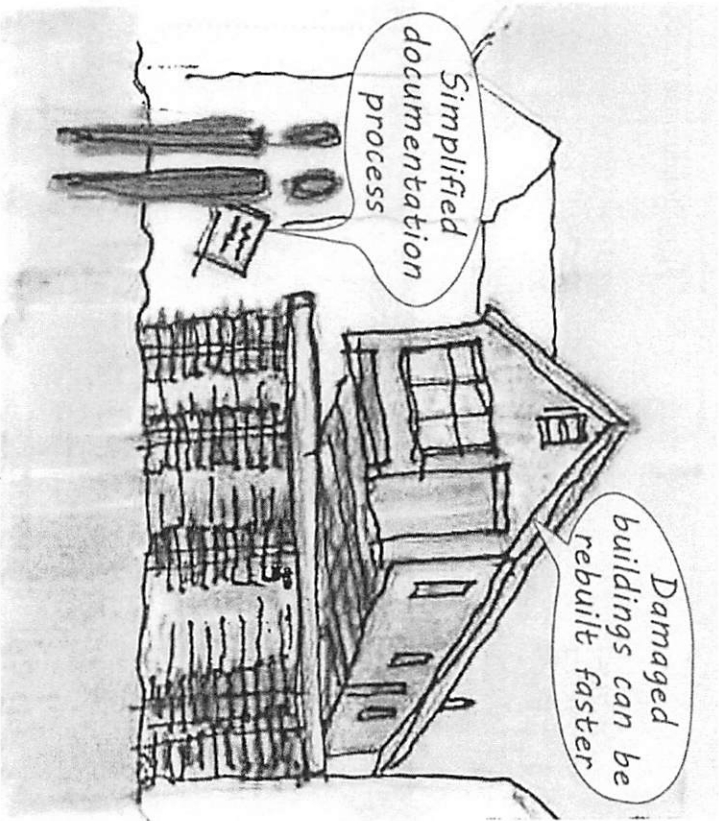 Simplified
documentation
process
Damaged
buildings can be
rebuilt faster